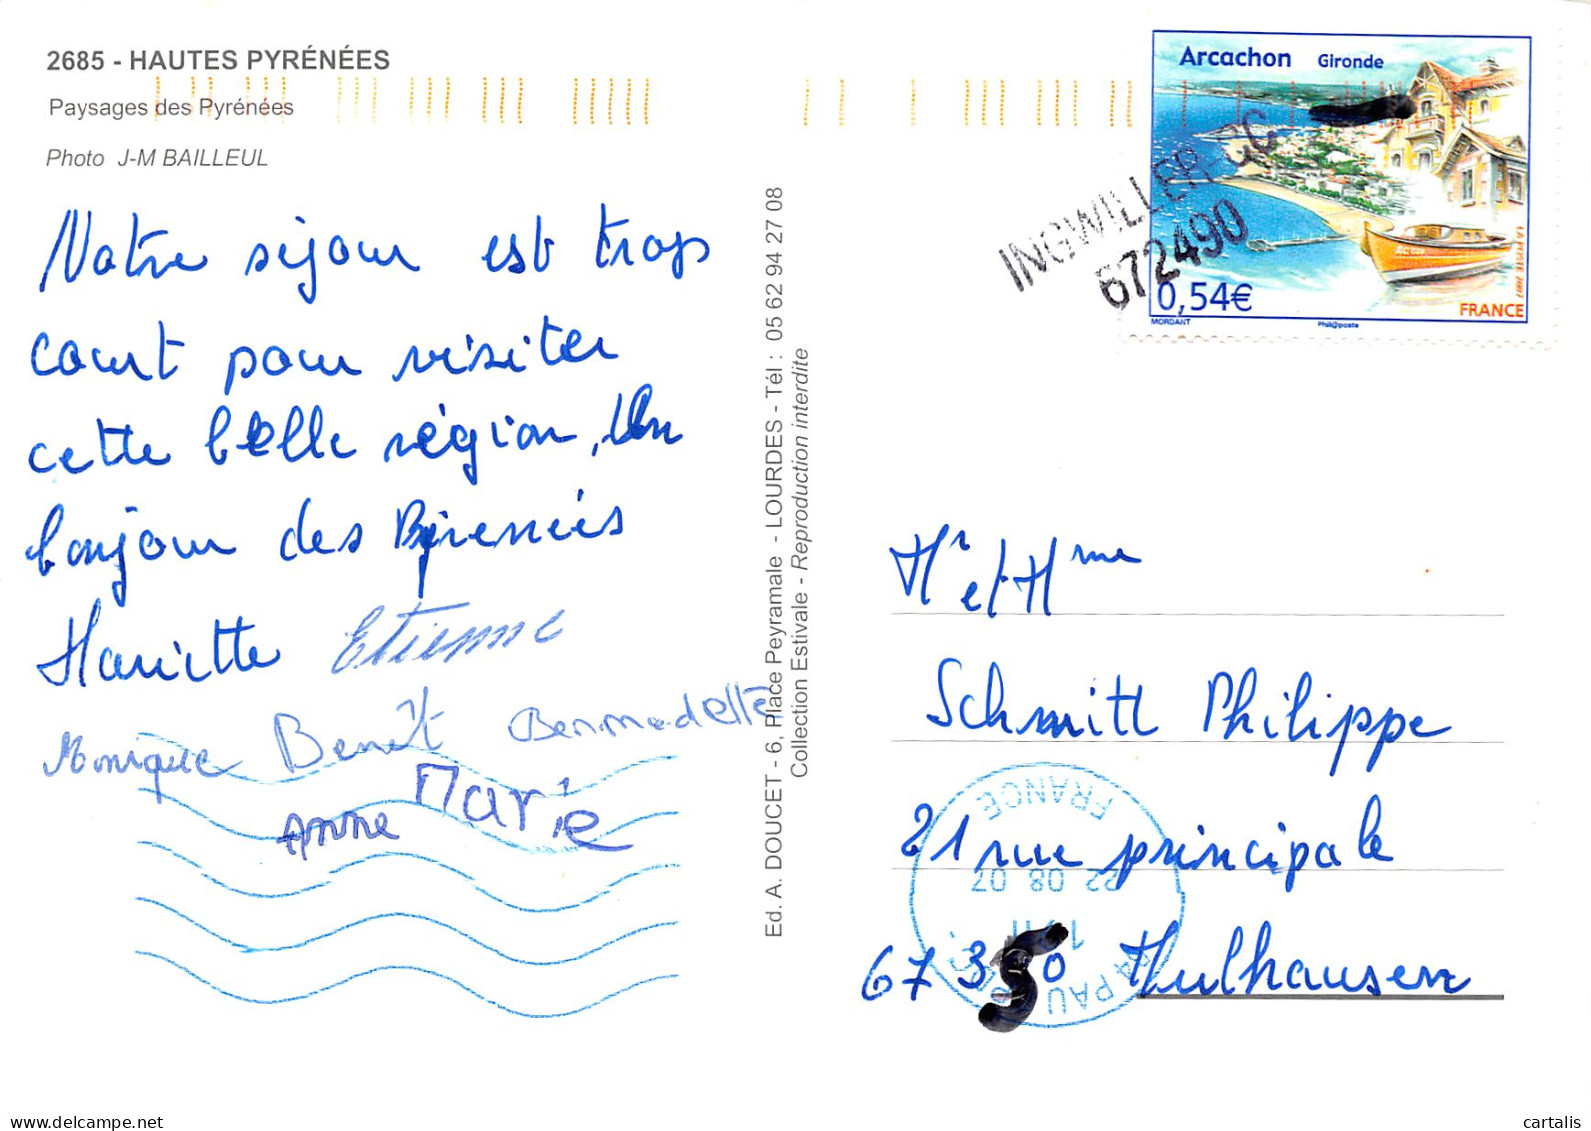 2685 - HAUTES PYRÉNÉES
Paysages des Pyrénées
Photo J-M BAILLEUL
Notre séjour est trop
court pour visiter
cette belle région, Un
bonjour des Pyrenées
Mariette Etienne
Monique Benoît Bernadette
Anne Marie
Ed. A. DOUCET - 6, Place Peyramale - LOURDES - Tél : 05 62 94 27 08
Collection Estivale - Reproduction interdite
Arcachon Gironde
0,54€
MORDANT
Phil@poste
FRANCE
LA POSTE 2007
INGWILLER CC
672490
Mr et Mme
Schmitt Philippe
21 rue principale
67350 Mulhausen
FRANCE
22 08 07
64 PAU
www.cartalis.com
cartalis